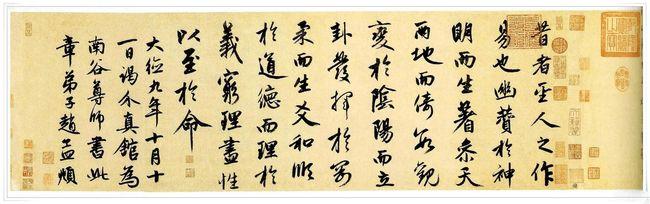 昔者聖人之作
易也幽贊於神
明而生蓍參天
兩地而倚數觀
變於陰陽而立
卦發揮於剛
柔而生爻和順
於道德而理於
義窮理盡性
以至於命
大德九年十月十
一日謁升真館為
南谷尊師書此
章弟子趙孟頫